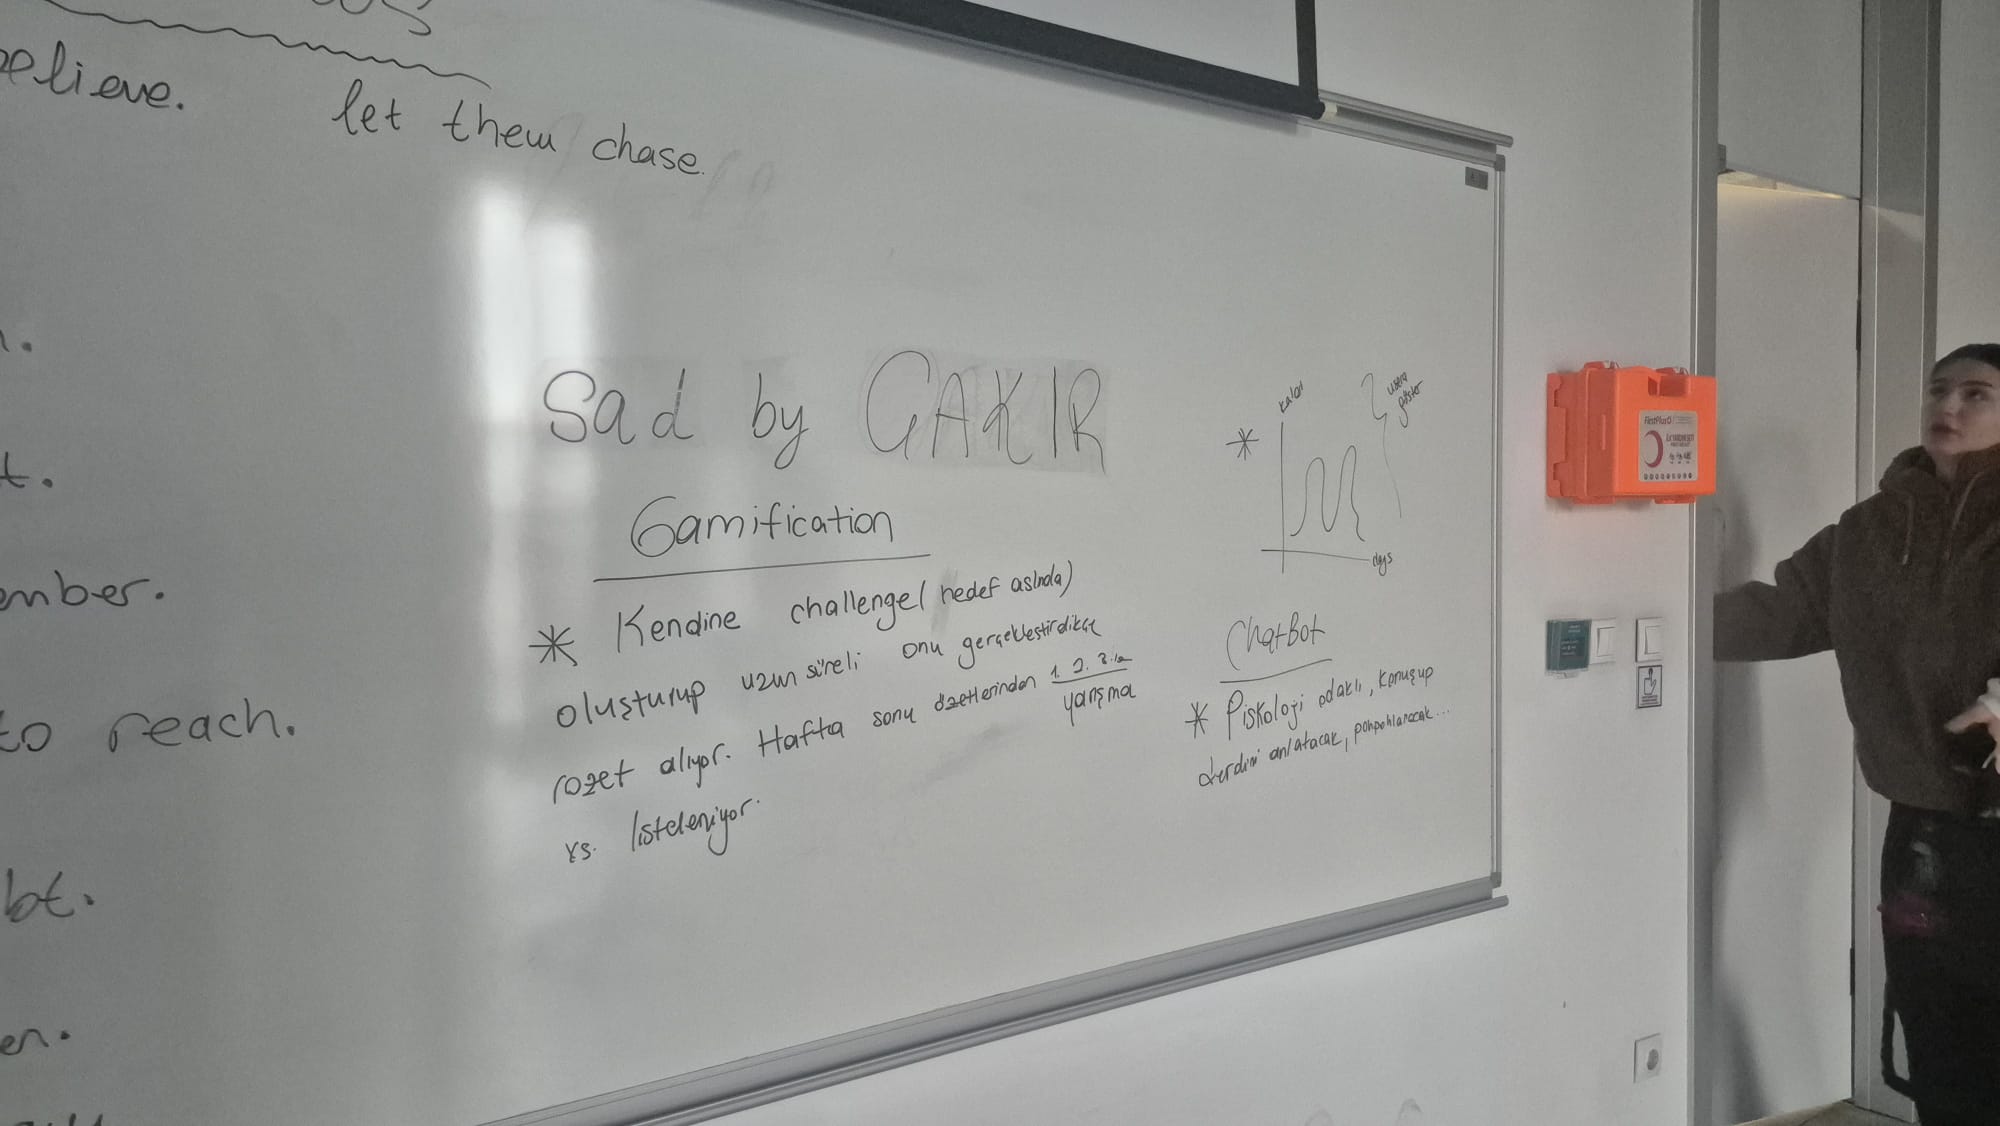 believe.
let them chase.
t.
ember.
to reach.
bt.
en.
Sad by GAKIR
Gamification
* Kendine challenge (hedef aslında)
oluşturup uzun süreli onu gerçekleştirdikçe
rozet alıyor. Hafta sonu özetlerinden 1. 2. 3.
yarışma
vs. listeleniyor.
*
kalori
usera göster
days
ChatBot
* Piskoloji odaklı, konuşup
derdini anlatacak, pohpohlanacak...
FirstPlus
İLK YARDIM SETİ